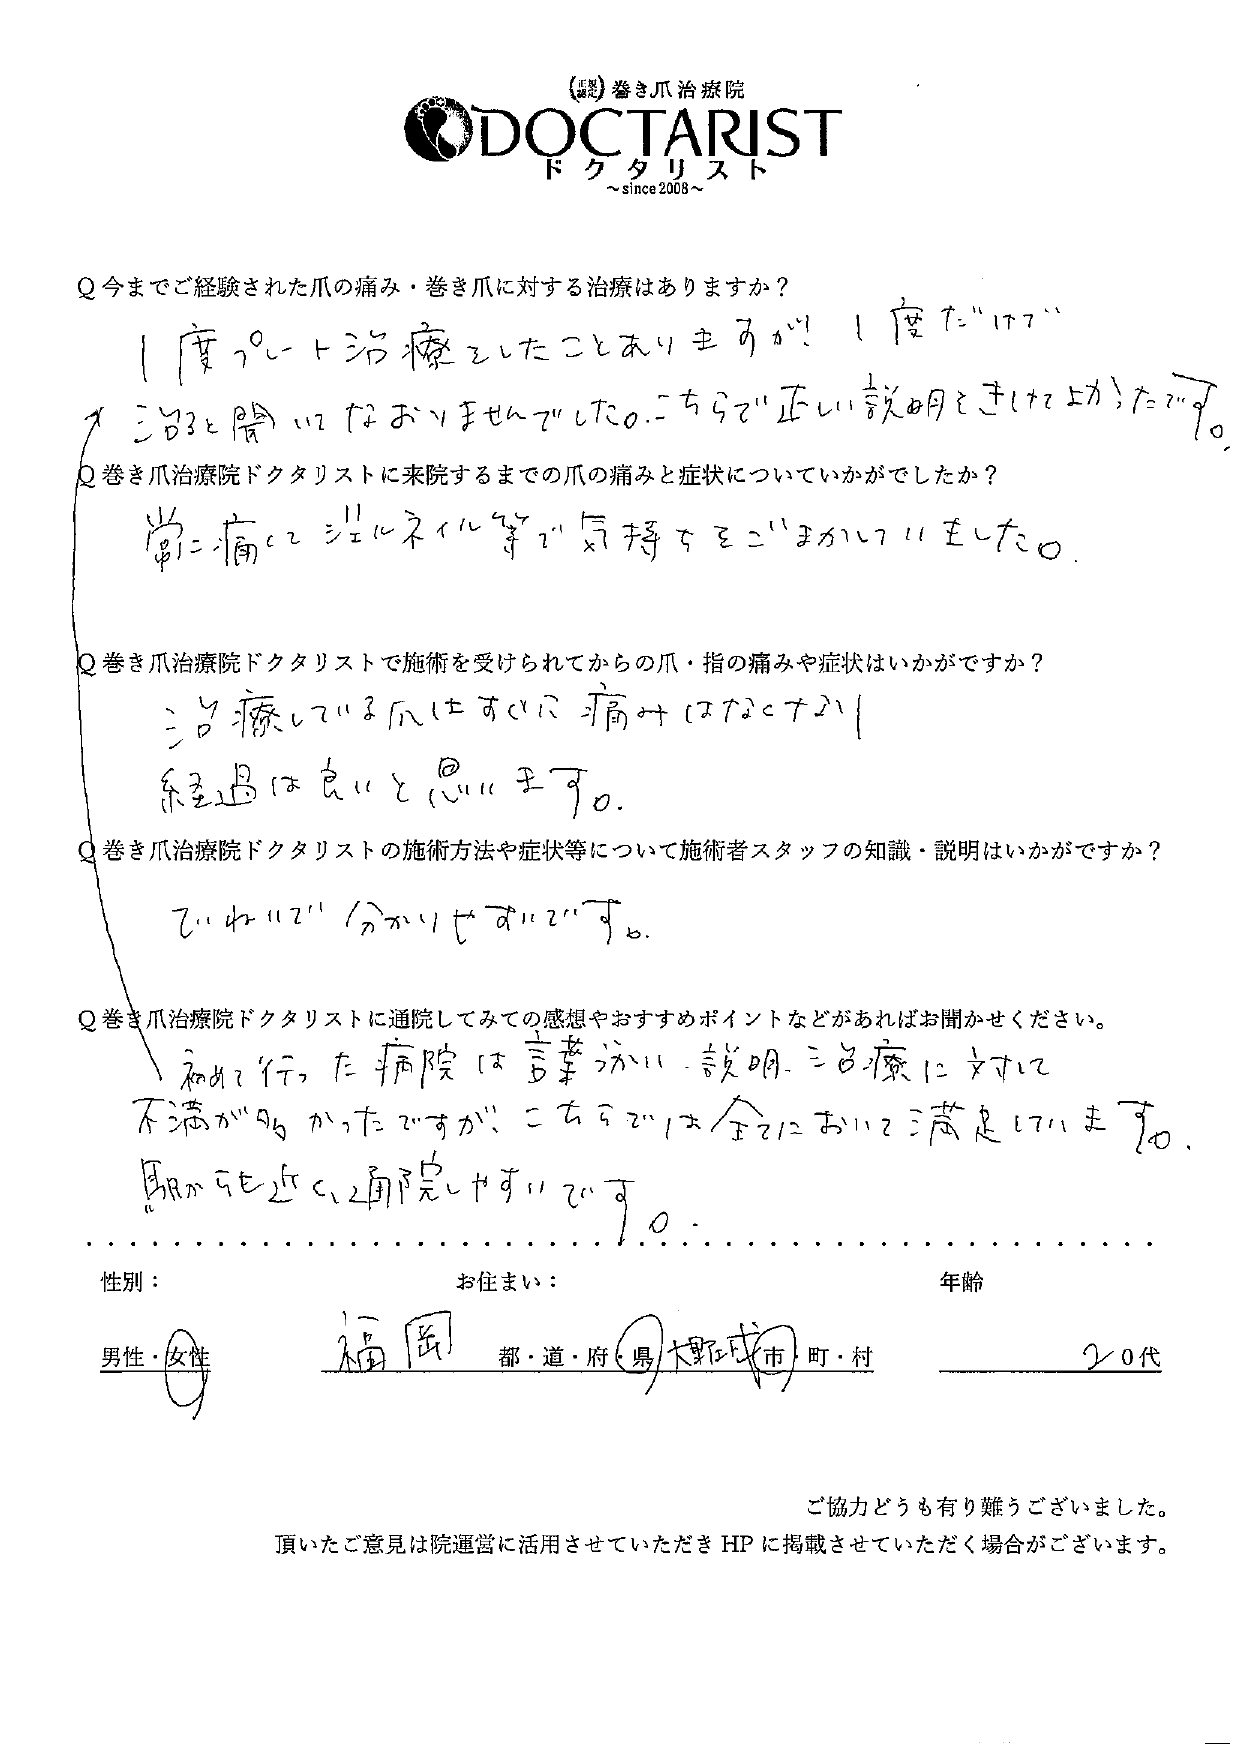 (正規認定)巻き爪治療院
DOCTARIST
ドクタリスト
～since2008～
Q 今までご経験された爪の痛み・巻き爪に対する治療はありますか？
1度プレート治療をしたことありますが！1度だけで
治ると聞いてなおりませんでした。こちらで正しい説明をきけて良かったです。
Q 巻き爪治療院ドクタリストに来院するまでの爪の痛みと症状についていかがでしたか？
常に痛くてジェルネイル等で気持ちをごまかしていました。
Q 巻き爪治療院ドクタリストで施術を受けられてからの爪・指の痛みや症状はいかがですか？
治療している爪はすぐに痛みはなくなり
経過は良いと思います。
Q 巻き爪治療院ドクタリストの施術方法や症状等について施術者スタッフの知識・説明はいかがですか？
ていねいで分かりやすいです。
Q 巻き爪治療院ドクタリストに通院してみての感想やおすすめポイントなどがあればお聞かせください。
初めて行った病院は言葉づかい、説明、治療に対して
不満が多かったですが、こちらでは全てにおいて満足しています。
駅からも近く、通院しやすいです。
性別： お住まい： 年齢
男性・女性 福岡 都・道・府・県 大野城 市・町・村 20代
ご協力どうも有り難うございました。
頂いたご意見は院運営に活用させていただき HP に掲載させていただく場合がございます。